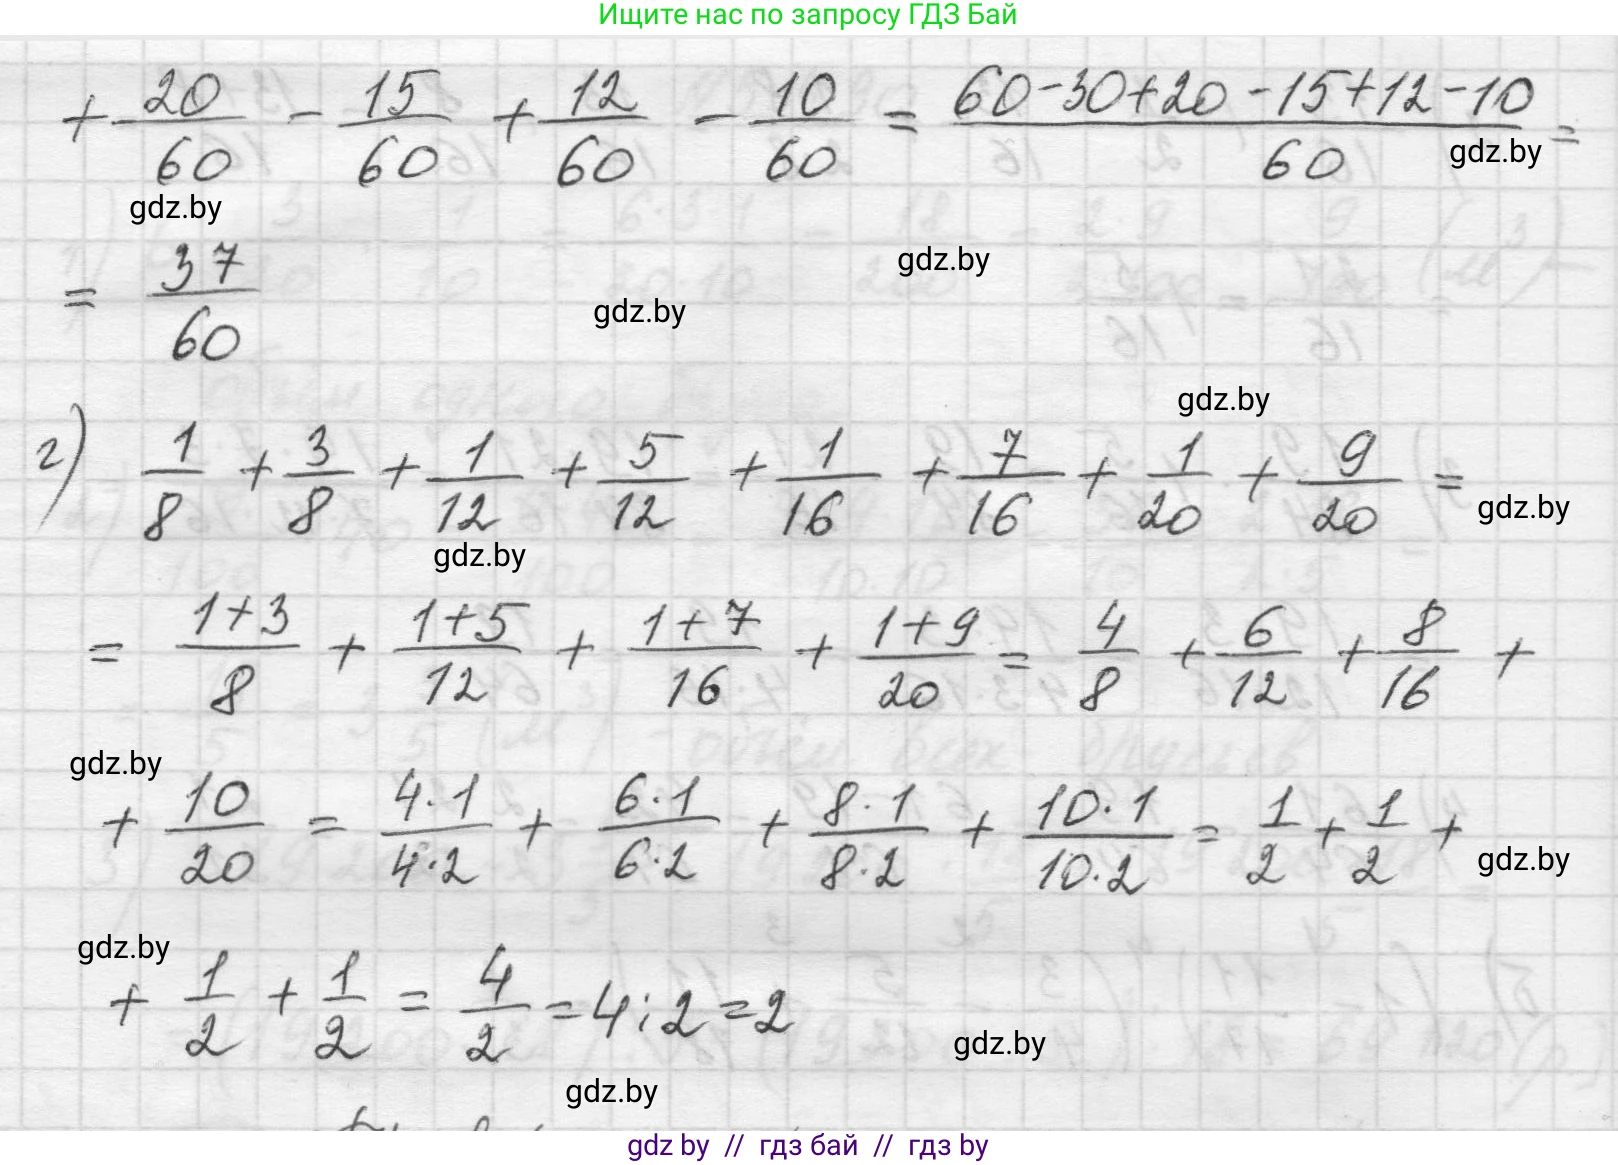 Ищите нас по запросу ГДЗ Бай
+ 20/60 - 15/60 + 12/60 - 10/60 = (60-30+20-15+12-10)/60 =
gdz.by
gdz.by
= 37/60
gdz.by
gdz.by
gdz.by
г) 1/8 + 3/8 + 1/12 + 5/12 + 1/16 + 7/16 + 1/20 + 9/20 =
gdz.by
gdz.by
= (1+3)/8 + (1+5)/12 + (1+7)/16 + (1+9)/20 = 4/8 + 6/12 + 8/16 +
gdz.by
+ 10/20 = (4·1)/(4·2) + (6·1)/(6·2) + (8·1)/(8·2) + (10·1)/(10·2) = 1/2 + 1/2 +
gdz.by
gdz.by
+ 1/2 + 1/2 = 4/2 = 4:2=2
gdz.by
gdz.by
gdz by // гдз бай // гдз by